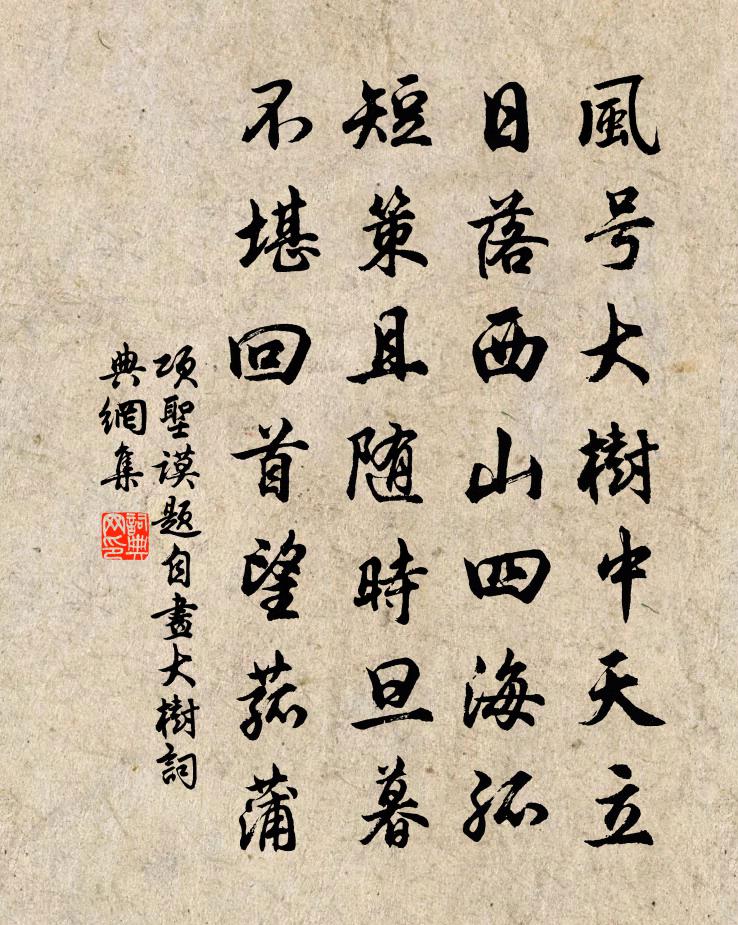 風号大樹中天立
日落西山四海孤
短策且随時旦暮
不堪回首望菰蒲
項聖謨題自畫大樹詞
典網集
詞典網印